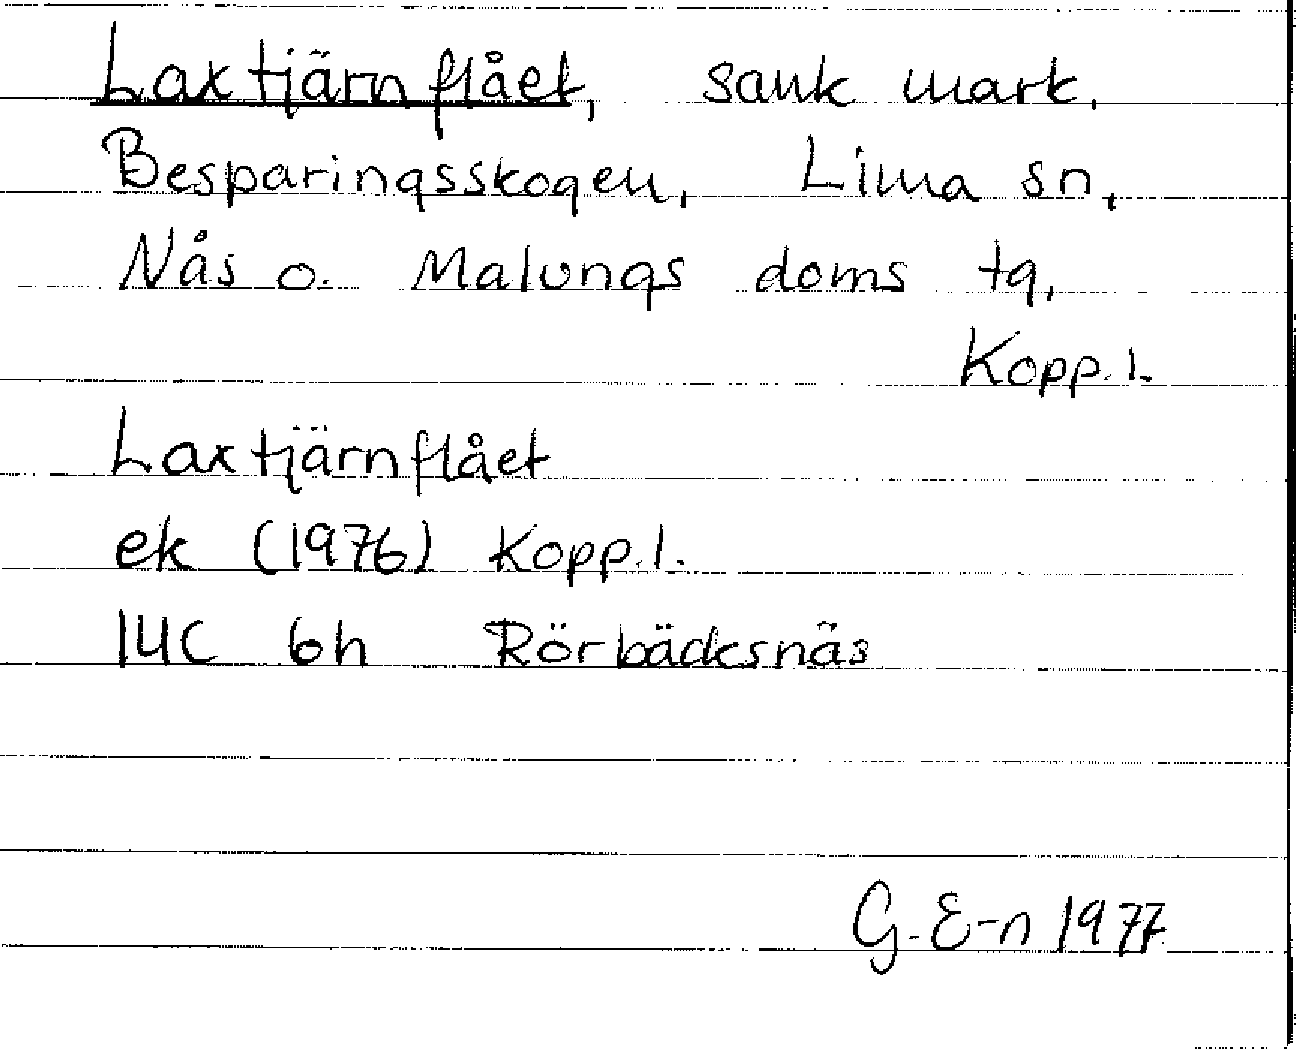 Laxtjärnflået, sank mark.
Besparingsskogen, Lima sn,
Nås o. Malungs doms tg,
Kopp. l.
Laxtjärnflået
ek (1976) Kopp. l.
14C 6h Rörbäcksnäs
G. E-n 1977